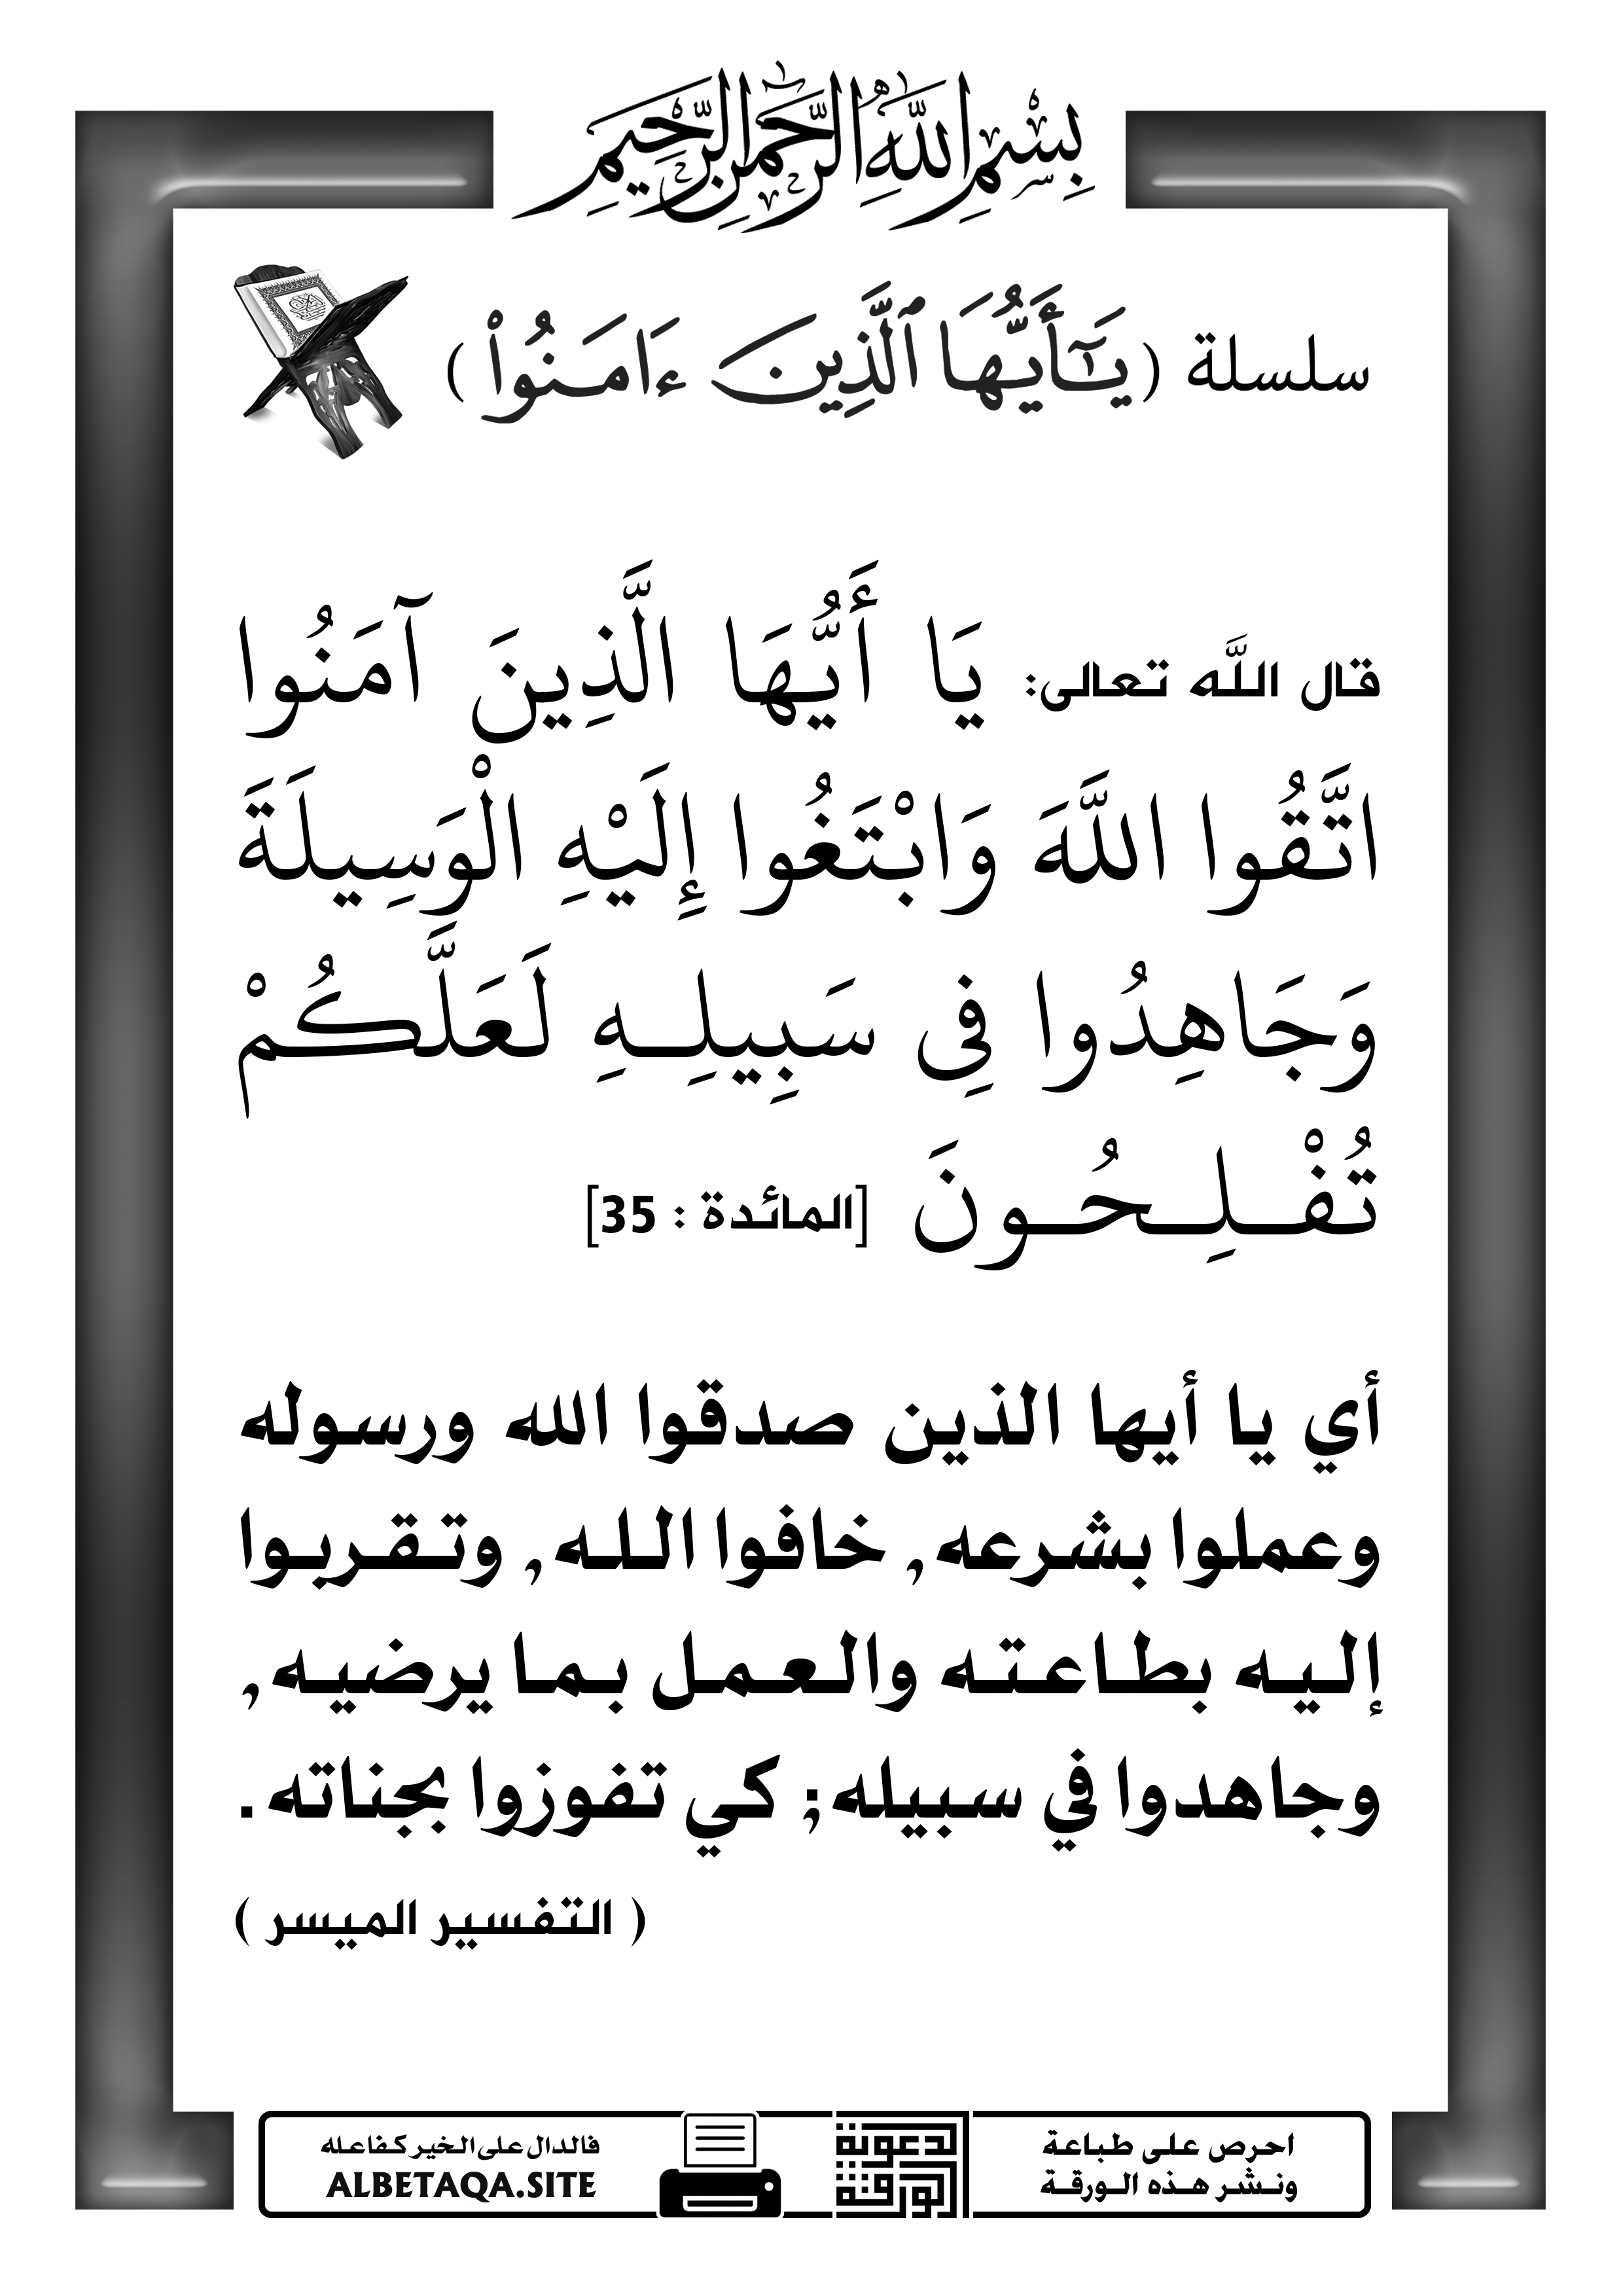 بِسْمِ اللَّهِ الرَّحْمَٰنِ الرَّحِيمِ
سلسلة (يَٰٓأَيُّهَا ٱلَّذِينَ ءَامَنُوا۟)
قال اللَّه تعالى: يَا أَيُّهَا الَّذِينَ آمَنُوا
اتَّقُوا اللَّهَ وَابْتَغُوا إِلَيْهِ الْوَسِيلَةَ
وَجَاهِدُوا فِي سَبِيلِهِ لَعَلَّكُمْ
تُفْلِحُونَ [المائدة : 35]
أي يا أيها الذين صدقوا الله ورسوله
وعملوا بشرعه, خافوا الله, وتقربوا
إليه بطاعته والعمل بما يرضيه,
وجاهدوا في سبيله; كي تفوزوا بجناته.
( التفسير الميسر )
احرص على طباعة
ونشر هذه الورقة
الدعوية
الورقة
فالدال على الخير كفاعله
ALBETAQA.SITE